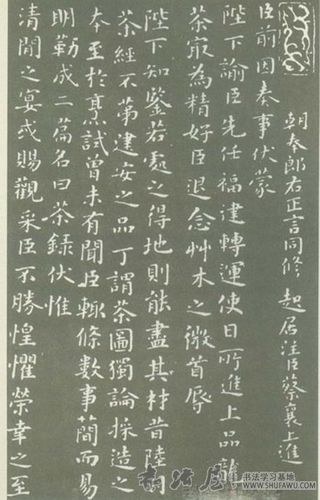 朝奉郎右正言同修起居注臣蔡襄上進
臣前因奏事伏蒙
陛下諭臣先任福建轉運使日所進上品龍
茶最為精好臣退念艸木之微首辱
陛下知鑒若處之得地則能盡其材昔陸羽
茶經不第建安之品丁謂茶圖獨論採造之
本至於烹試曾未有聞臣輒條數事簡而易
明勒成二篇名曰茶錄伏惟
清閒之宴或賜觀采臣不勝惶懼榮幸之至
书法屋
书法学习基地
WWW.SHUFAWU.COM